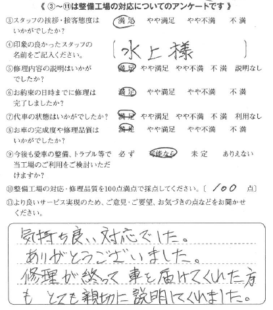 《 ③〜⑪は整備工場の対応についてのアンケートです 》
③スタッフの挨拶・接客態度は 満足 やや満足 やや不満 不満
いかがでしたか?
④印象の良かったスタッフの
名前をご記入ください。 〔 水上様 〕
⑤修理内容の説明はいかが 満足 やや満足 やや不満 不満 説明なし
でしたか?
⑥お約束の日時までに修理は 満足 やや満足 やや不満 不満
完了しましたか?
⑦代車の状態はいかがでしたか? 満足 やや満足 やや不満 不満 利用なし
⑧お車の完成度や修理品質は 満足 やや満足 やや不満 不満
いかがでしたか?
⑨今後も愛車の整備、トラブル等で 必ず 可能なら 未定 ありえない
当工場のご利用をご検討いただ
けますか?
⑩整備工場の対応・修理品質を100点満点で採点してください。〔 100 点〕
⑪より良いサービス実現のため、ご意見・ご要望、お気づきの点などをお聞かせ
ください。
気持ち良い対応でした。
ありがとうございました。
修理が終って車を届けてくれた方
もとても親切に説明してくれました。